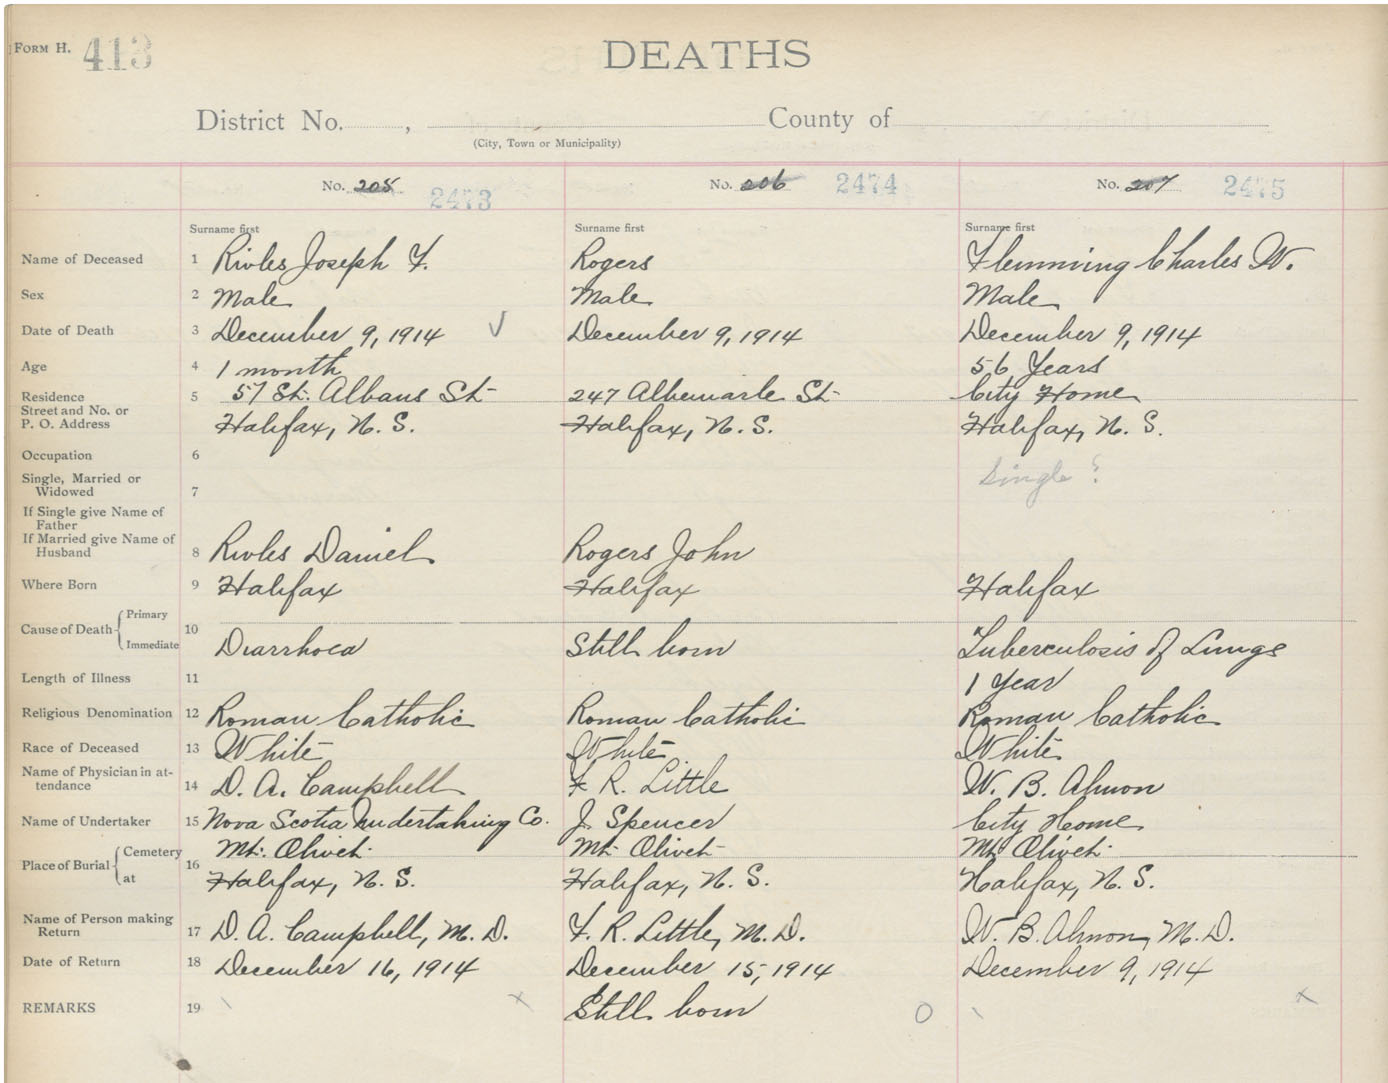 FORM H. 413
DEATHS
District No. , County of
(City, Town or Municipality)
No. 205 2473 No. 206 2474 No. 207 2475
Surname first Surname first Surname first
Name of Deceased 1 Rivles Joseph F. Rogers Flemming Charles W.
Sex 2 Male Male Male
Date of Death 3 December 9, 1914 December 9, 1914 December 9, 1914
Age 4 1 month 56 Years
Residence 5 57 St. Albans St 247 Albemarle St City Home
Street and No. or
P. O. Address Halifax, N. S. Halifax, N. S. Halifax, N. S.
Occupation 6
Single, Married or
Widowed 7 Single ?
If Single give Name of
Father
If Married give Name of
Husband 8 Rivles Daniel Rogers John
Where Born 9 Halifax Halifax Halifax
Cause of Death Primary
Immediate 10 Diarrhoea Still born Tuberculosis of Lungs
Length of Illness 11 1 Year
Religious Denomination 12 Roman Catholic Roman Catholic Roman Catholic
Race of Deceased 13 White White White
Name of Physician in at-
tendance 14 D. A. Campbell F. R. Little W. B. Almon
Name of Undertaker 15 Nova Scotia Undertaking Co. J. Spencer City Home
Place of Burial Cemetery 16 Mt. Olivet Mt. Olivet Mt. Olivet
at Halifax, N. S. Halifax, N. S. Halifax, N. S.
Name of Person making
Return 17 D. A. Campbell, M. D. F. R. Little, M. D. W. B. Almon, M. D.
Date of Return 18 December 16, 1914 December 15, 1914 December 9, 1914
REMARKS 19 Still born